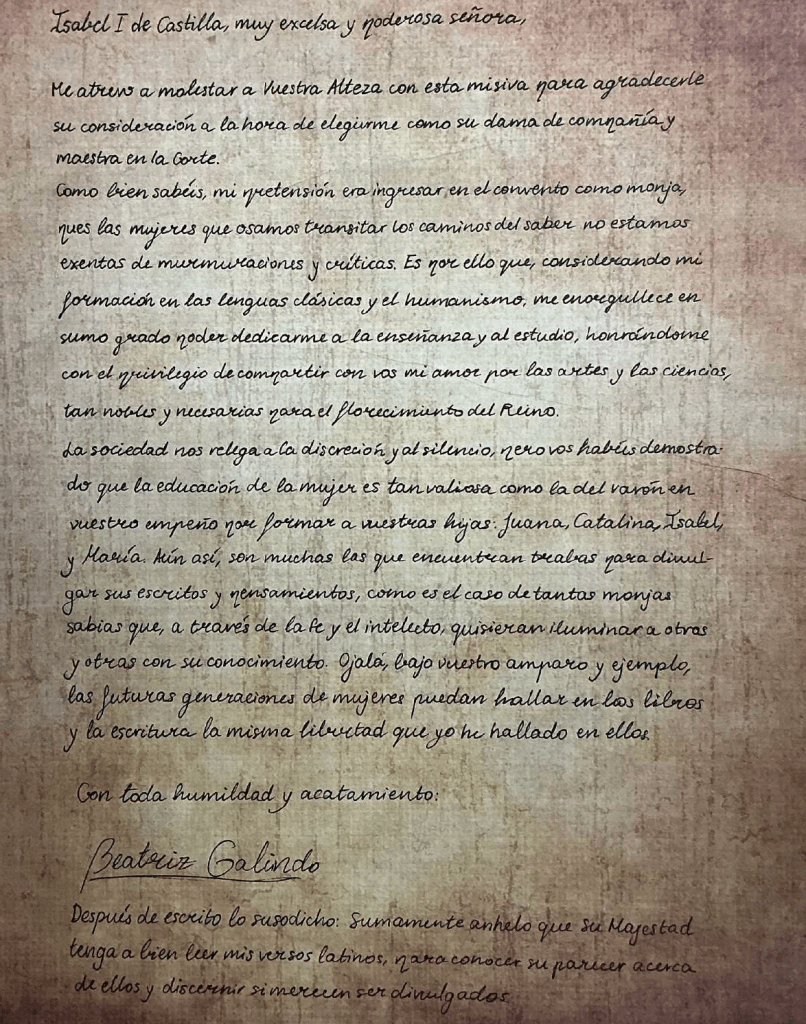 Isabel I de Castilla, muy excelsa y poderosa señora,
Me atrevo a molestar a Vuestra Alteza con esta misiva para agradecerle
su consideración a la hora de elegirme como su dama de compañía y
maestra en la Corte.
Como bien sabéis, mi pretensión era ingresar en el convento como monja,
pues las mujeres que osamos transitar los caminos del saber no estamos
exentas de murmuraciones y críticas. Es por ello que, considerando mi
formación en las lenguas clásicas y el humanismo, me enorgullece en
sumo grado poder dedicarme a la enseñanza y al estudio, honrándome
con el privilegio de compartir con vos mi amor por las artes y las ciencias,
tan nobles y necesarias para el florecimiento del Reino.
La sociedad nos relega a la discreción y al silencio, pero vos habéis demostra-
do que la educación de la mujer es tan valiosa como la del varón en
vuestro empeño por formar a vuestras hijas: Juana, Catalina, Isabel,
y María. Aún así, son muchas las que encuentran trabas para divul-
gar sus escritos y pensamientos, como es el caso de tantas monjas
sabias que, a través de la fe y el intelecto, quisieran iluminar a otros
y otras con su conocimiento. Ojalá, bajo vuestro amparo y ejemplo,
las futuras generaciones de mujeres puedan hallar en los libros
y la escritura la misma libertad que yo he hallado en ellos.
Con toda humildad y acatamiento:
Beatriz Galindo
Después de escrito lo susodicho: Sumamente anhelo que Su Majestad
tenga a bien leer mis versos latinos, para conocer su parecer acerca
de ellos y discernir si merecen ser divulgados.